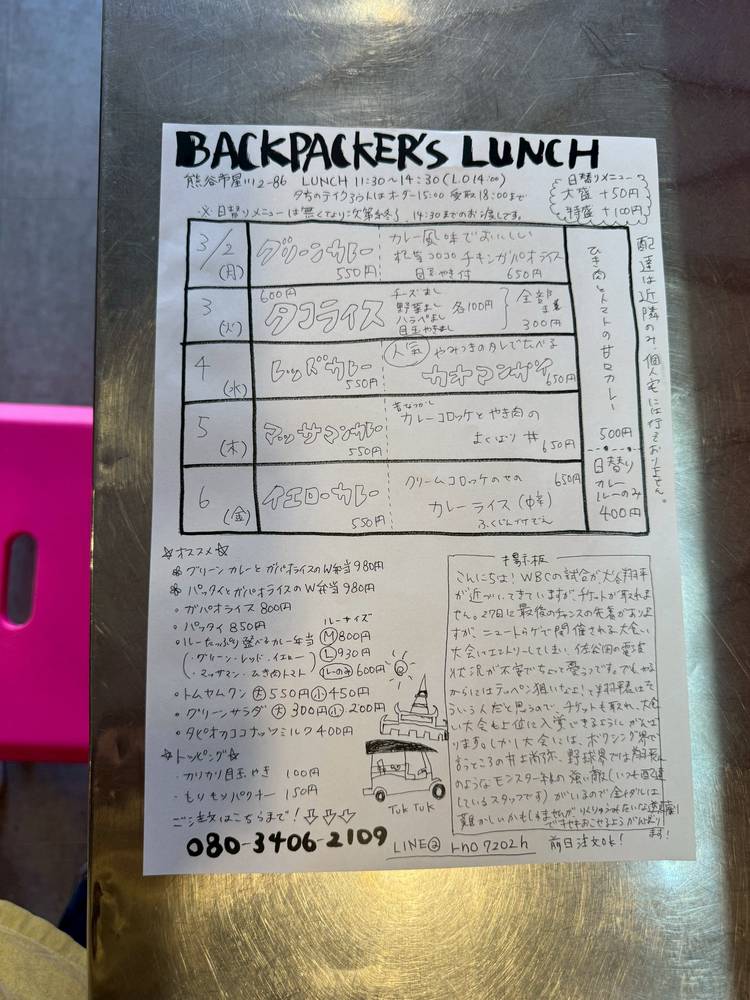 BACKPACKER'S LUNCH
熊谷市星川2-86 LUNCH 11:30〜14:30 (L.O 14:00)
夕方のテイクアウトはオーダー15:00 受取18:00まで
※日替りメニューは無くなり次第終了 14:30までのお渡しです。
日替りメニュー
大盛 +50円
特盛 +100円
3/2
(月)
グリーンカレー
550円
カレー風味でおいしい
チキンガパオライス
目玉やき付 650円
3
(火)
600円
タコライス
チーズまし
野菜まし
ハラペまし
目玉やきまし
各100円
全部
300円
4
(水)
レッドカレー
550円
人気 やみつきのタレで食べる
カオマンガイ
650円
5
(木)
マッサマンカレー
550円
昔なつかし
カレーコロッケとやき肉の
よくばり丼
650円
6
(金)
イエローカレー
550円
クリームコロッケのせの
650円
カレーライス(中辛)
ふくじんづけでん
ひき肉とトマトの甘口カレー
500円
日替り
カレー
ルーのみ
400円
配達は近隣のみ、個人宅には行っておりません。
☆オススメ☆
グリーンカレーとガパオライスのW弁当 980円
パッタイとガパオライスのW弁当 980円
・ガパオライス 800円
・パッタイ 850円
ルーサイズ
・ルーたっぷり選べるカレー弁当 Ⓜ800円
(・グリーン・レッド・イエロー Ⓛ930円
・マッサマン・ひき肉トマト) ルーのみ 600円
・トムヤムクン 大550円 小450円
・グリーンサラダ 大300円 小200円
・タピオカココナッツミルク 400円
☆トッピング☆
・カリカリ目玉やき 100円
・もりもりパクチー 150円
ご注文はこちらまで!
080-3406-2109
TUK TUK
LINE@
前日注文OK!
掲示板
こんにちは!WBCの試合が、大谷翔平
が近づいてきていますが、チケットが取れま
せん。27日に最後のチャンスの先着があります
が、ニュートラゲで開催される大会い
大会にエントリーしてしまい、佐谷田の電波
状況が不安でちょっと憂うつです。でもやる
からにはテッペン狙いなよ!と翔平君はそ
ういう人だと思うので、チケットも取れ、大会
い大会も上位に入賞できるようにがんば
ります。しかし大会には、ボクシング界で
言うところの井上尚弥、野球界では翔平
のようなモンスター級の強い敵(いつも配達
しているスタッフです)がいるので金メダルは
難しいかもしれませんが
ですがおこせるようがんばり
ます!